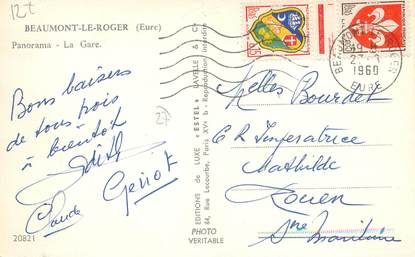 12t
BEAUMONT-LE-ROGER (Eure)
Panorama - La Gare.
Bons baisers
de tous trois
à bientôt
Edith
Claude
Genot
20821
27
EDITIONS de LUXE "ESTEL" LAVELLE & Cº
84, Rue Lecourbe, Paris XVº b - Reproduction interdite
PHOTO
VERITABLE
0,05
BEAUMONT
1960
EURE
Melles Bourdet
6 R Imperatrice
Mathilde
Rouen
Sne Maritime